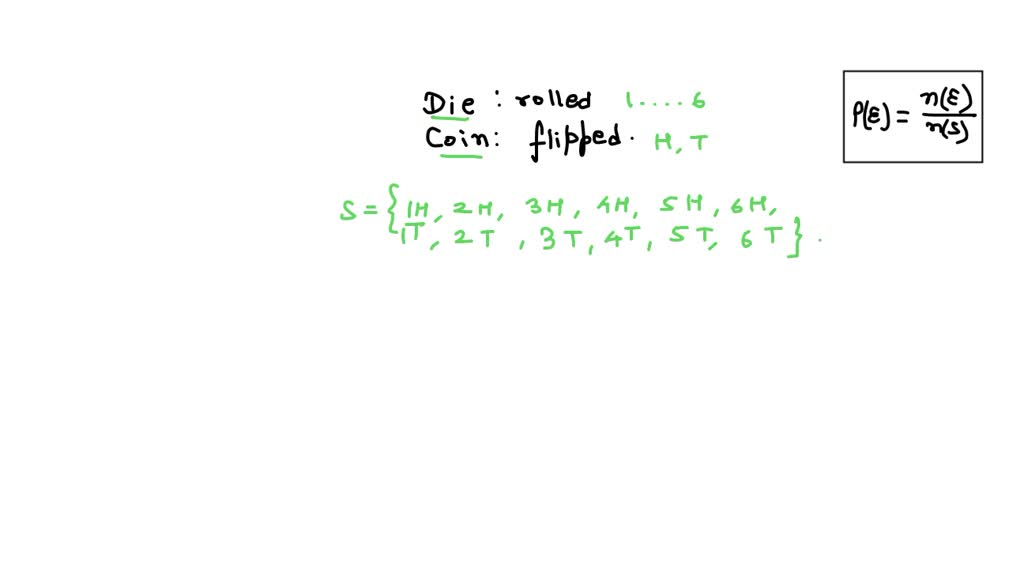 Die : rolled 1....6
Coin: flipped. H, T
P(E) = n(E)/n(S)
S = {1H, 2H, 3H, 4H, 5H, 6H,
1T, 2T, 3T, 4T, 5T, 6T}.